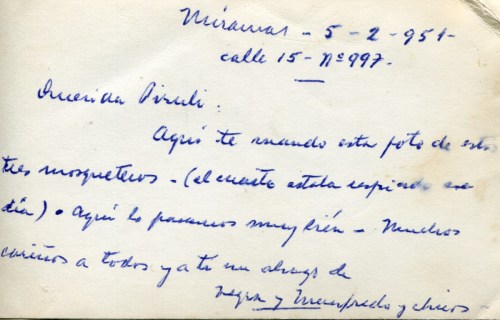 Miramar - 5 - 2 - 951-
calle 15 - Nº 997-
Querida Piruli.
Aquí te mando esta foto de estos
tres mosqueteros - (el cuarto estaba resfriado ese
día) . Aquí lo pasamos muy bién - Muchos
cariños a todos y a ti un abrazo de
negra y Manfredo y chicos -